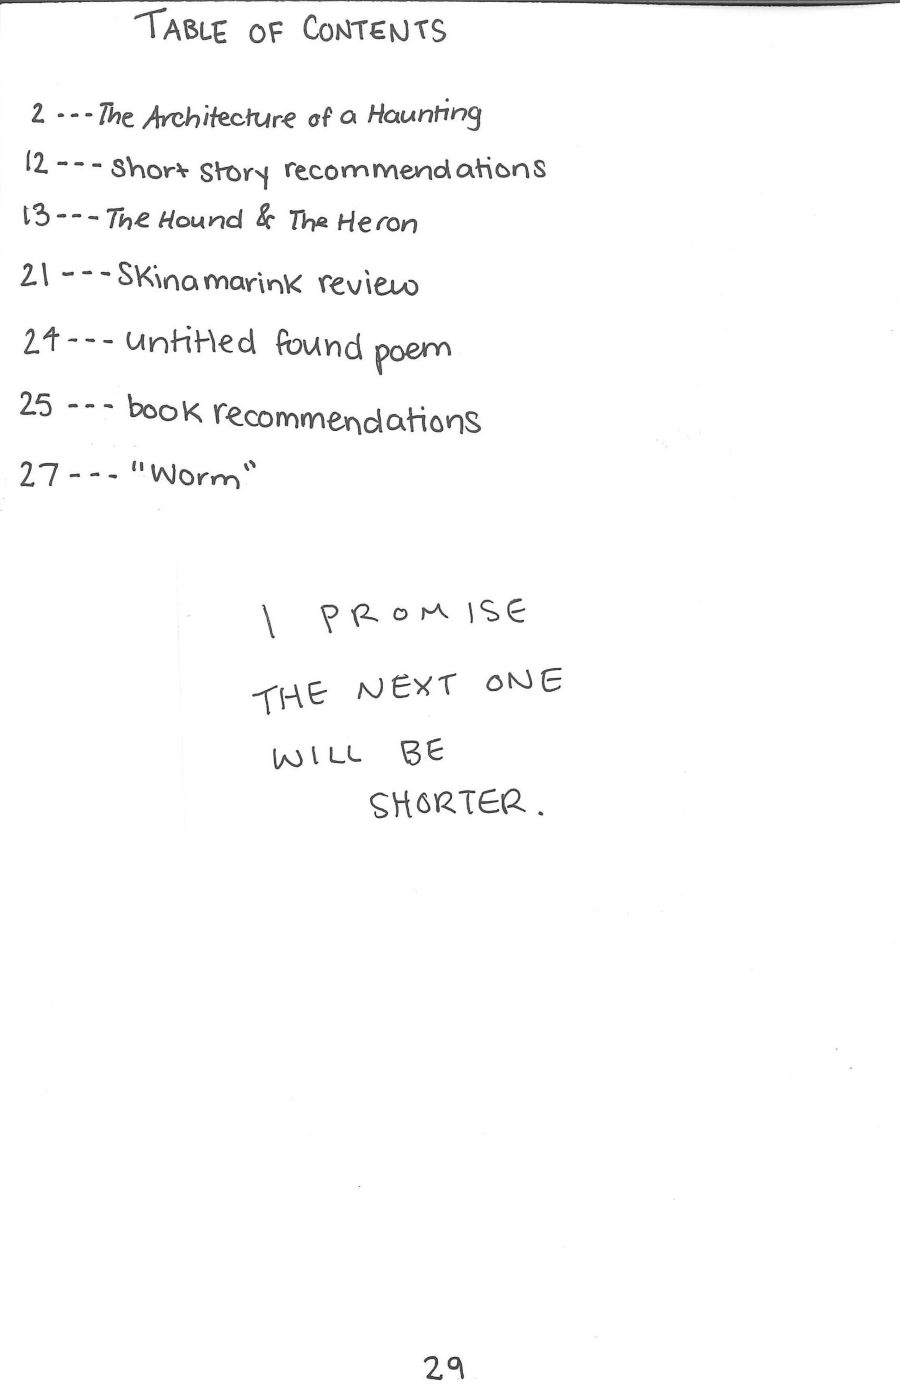 TABLE OF CONTENTS
2 --- The Architecture of a Haunting
12 --- short story recommendations
13 --- The Hound & The Heron
21 --- Skinamarink review
24 --- untitled found poem
25 --- book recommendations
27 --- "Worm"
I PROMISE
THE NEXT ONE
WILL BE
SHORTER.
29